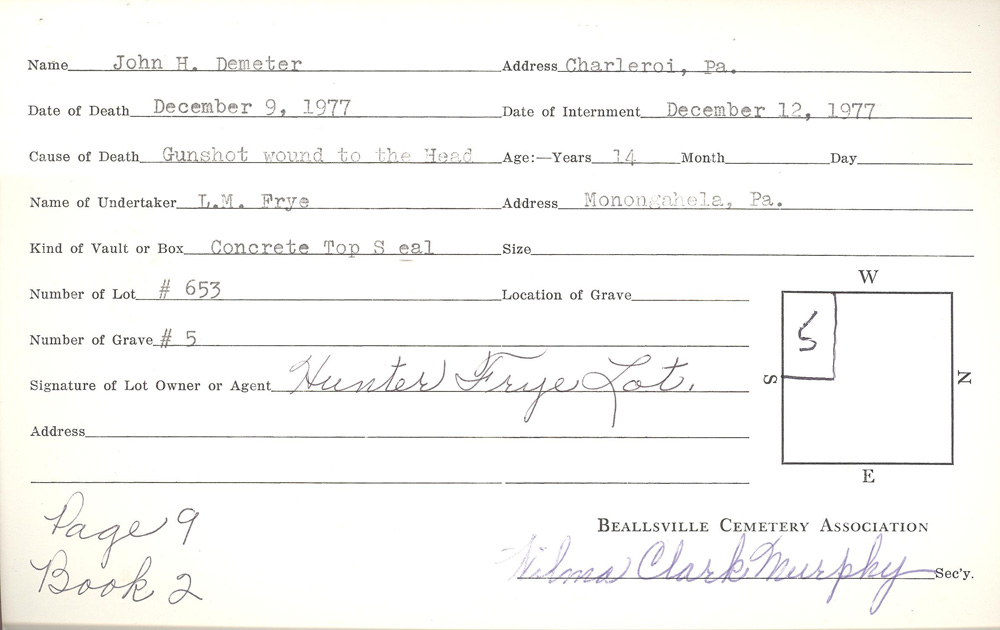 Name John H. Demeter Address Charleroi, Pa.
Date of Death December 9, 1977 Date of Internment December 12, 1977
Cause of Death Gunshot wound to the Head Age:—Years 14 Month Day
Name of Undertaker L.M. Frye Address Monongahela, Pa.
Kind of Vault or Box Concrete Top S eal Size
Number of Lot # 653 Location of Grave
Number of Grave # 5
Signature of Lot Owner or Agent Hunter Frye Lot.
Address
W
5
S
N
E
Page 9
Book 2
Beallsville Cemetery Association
Wilma Clark Murphy Sec'y.